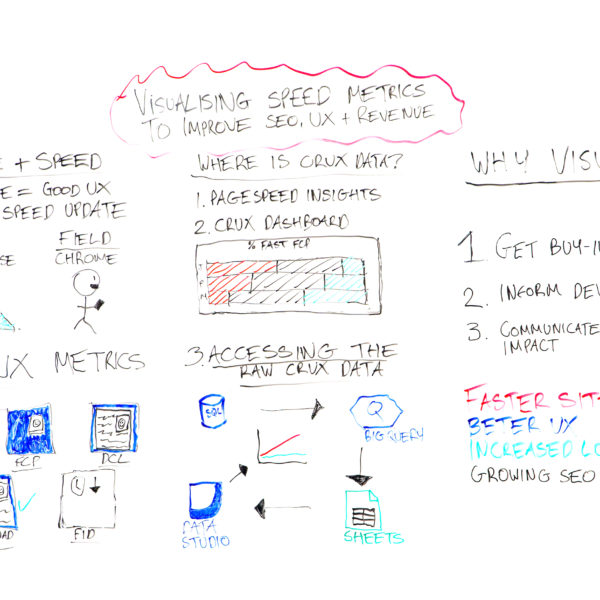 VISUALISING SPEED METRICS
TO IMPROVE SEO, UX + REVENUE
E + SPEED
E = GOOD UX
SPEED UPDATE
FIELD
CHROME
SE
UX METRICS
FCP
DCL
OAD
FID
WHERE IS CRUX DATA?
1. PAGESPEED INSIGHTS
2. CRUX DASHBOARD
% FAST FCP
T
P
N
3. ACCESSING THE
RAW CRUX DATA
SQL
Q
BIGQUERY
DATA
STUDIO
SHEETS
WHY VISU
1 GET BUY-I
2. INFORM DE
3. COMMUNICATE
IMPACT
FASTER SIT
BETER UX
INCREASED LO
GROWING SEO